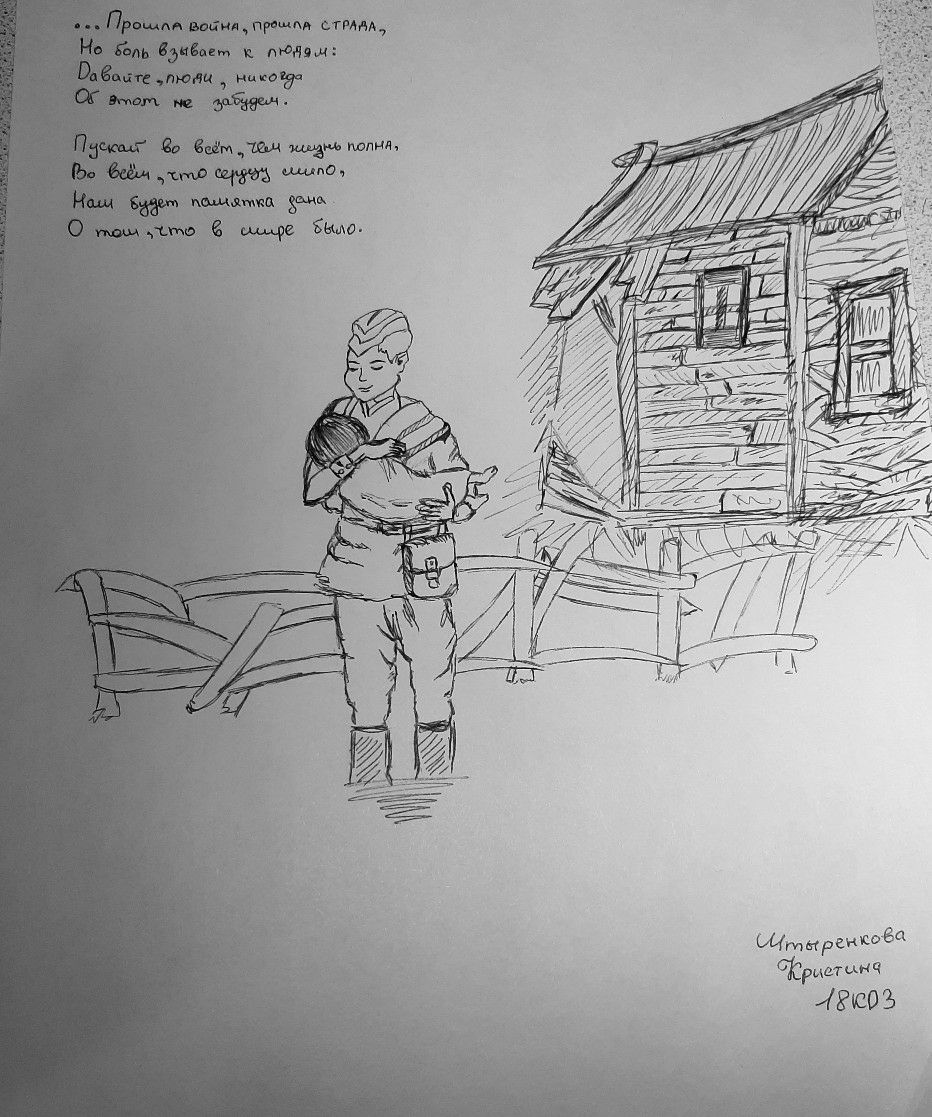 ...Прошла война, прошла страда,
Но боль взывает к людям:
Давайте, люди, никогда
Об этом не забудем.
Пускай во всём, чем жизнь полна,
Во всём, что сердцу мило,
Нам будет памятка дана
О том, что в мире было.
Штыренкова
Кристина
18КДЗ